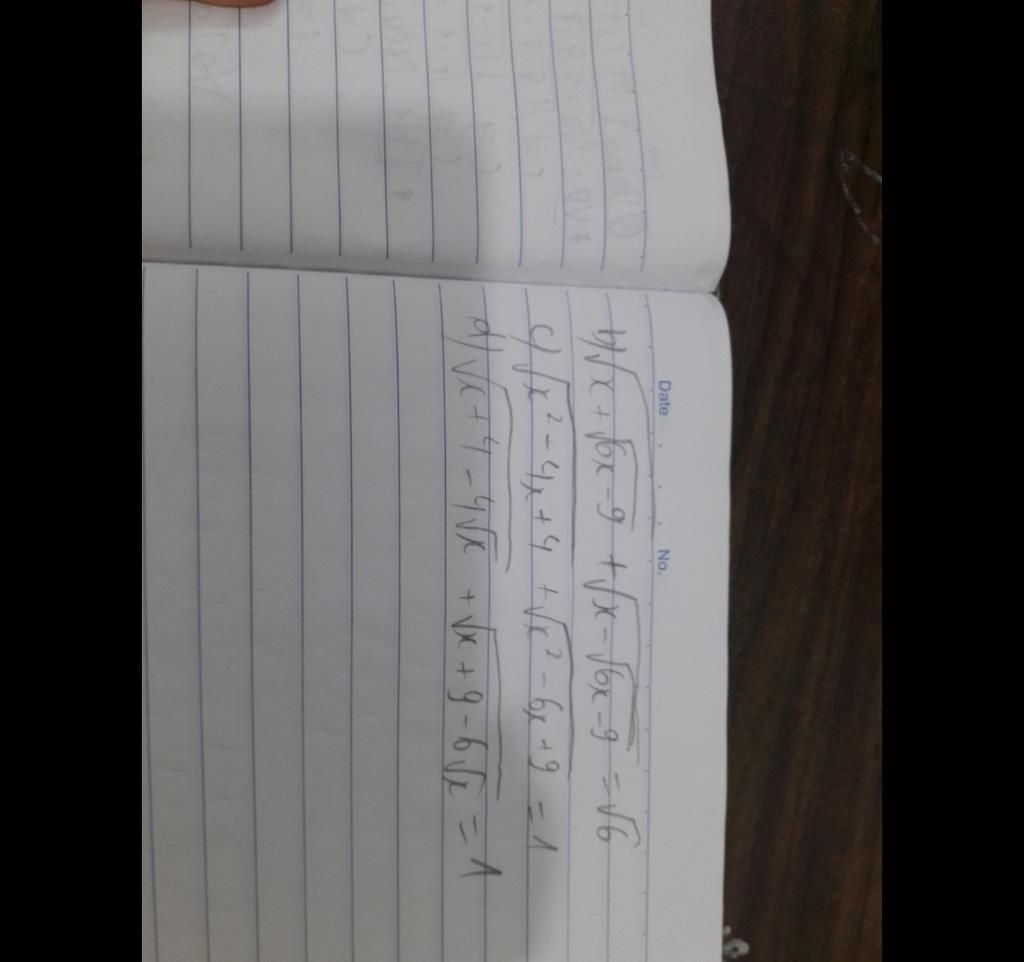 Date . . . No.
b) √(x + √(6x - 9)) + √(x - √(6x - 9)) = √6
c) √(x² - 4x + 4) + √(x² - 6x + 9) = 1
d) √(x + 4 - 4√x) + √(x + 9 - 6√x) = 1